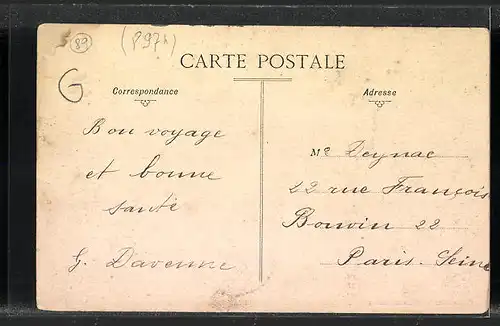 89 (P97h)
CARTE POSTALE
G
Correspondance
Adresse
Bon voyage
et bonne
santé
G. Davenne
Me Deynac
22 rue François
Bonvin 22
Paris. Seine